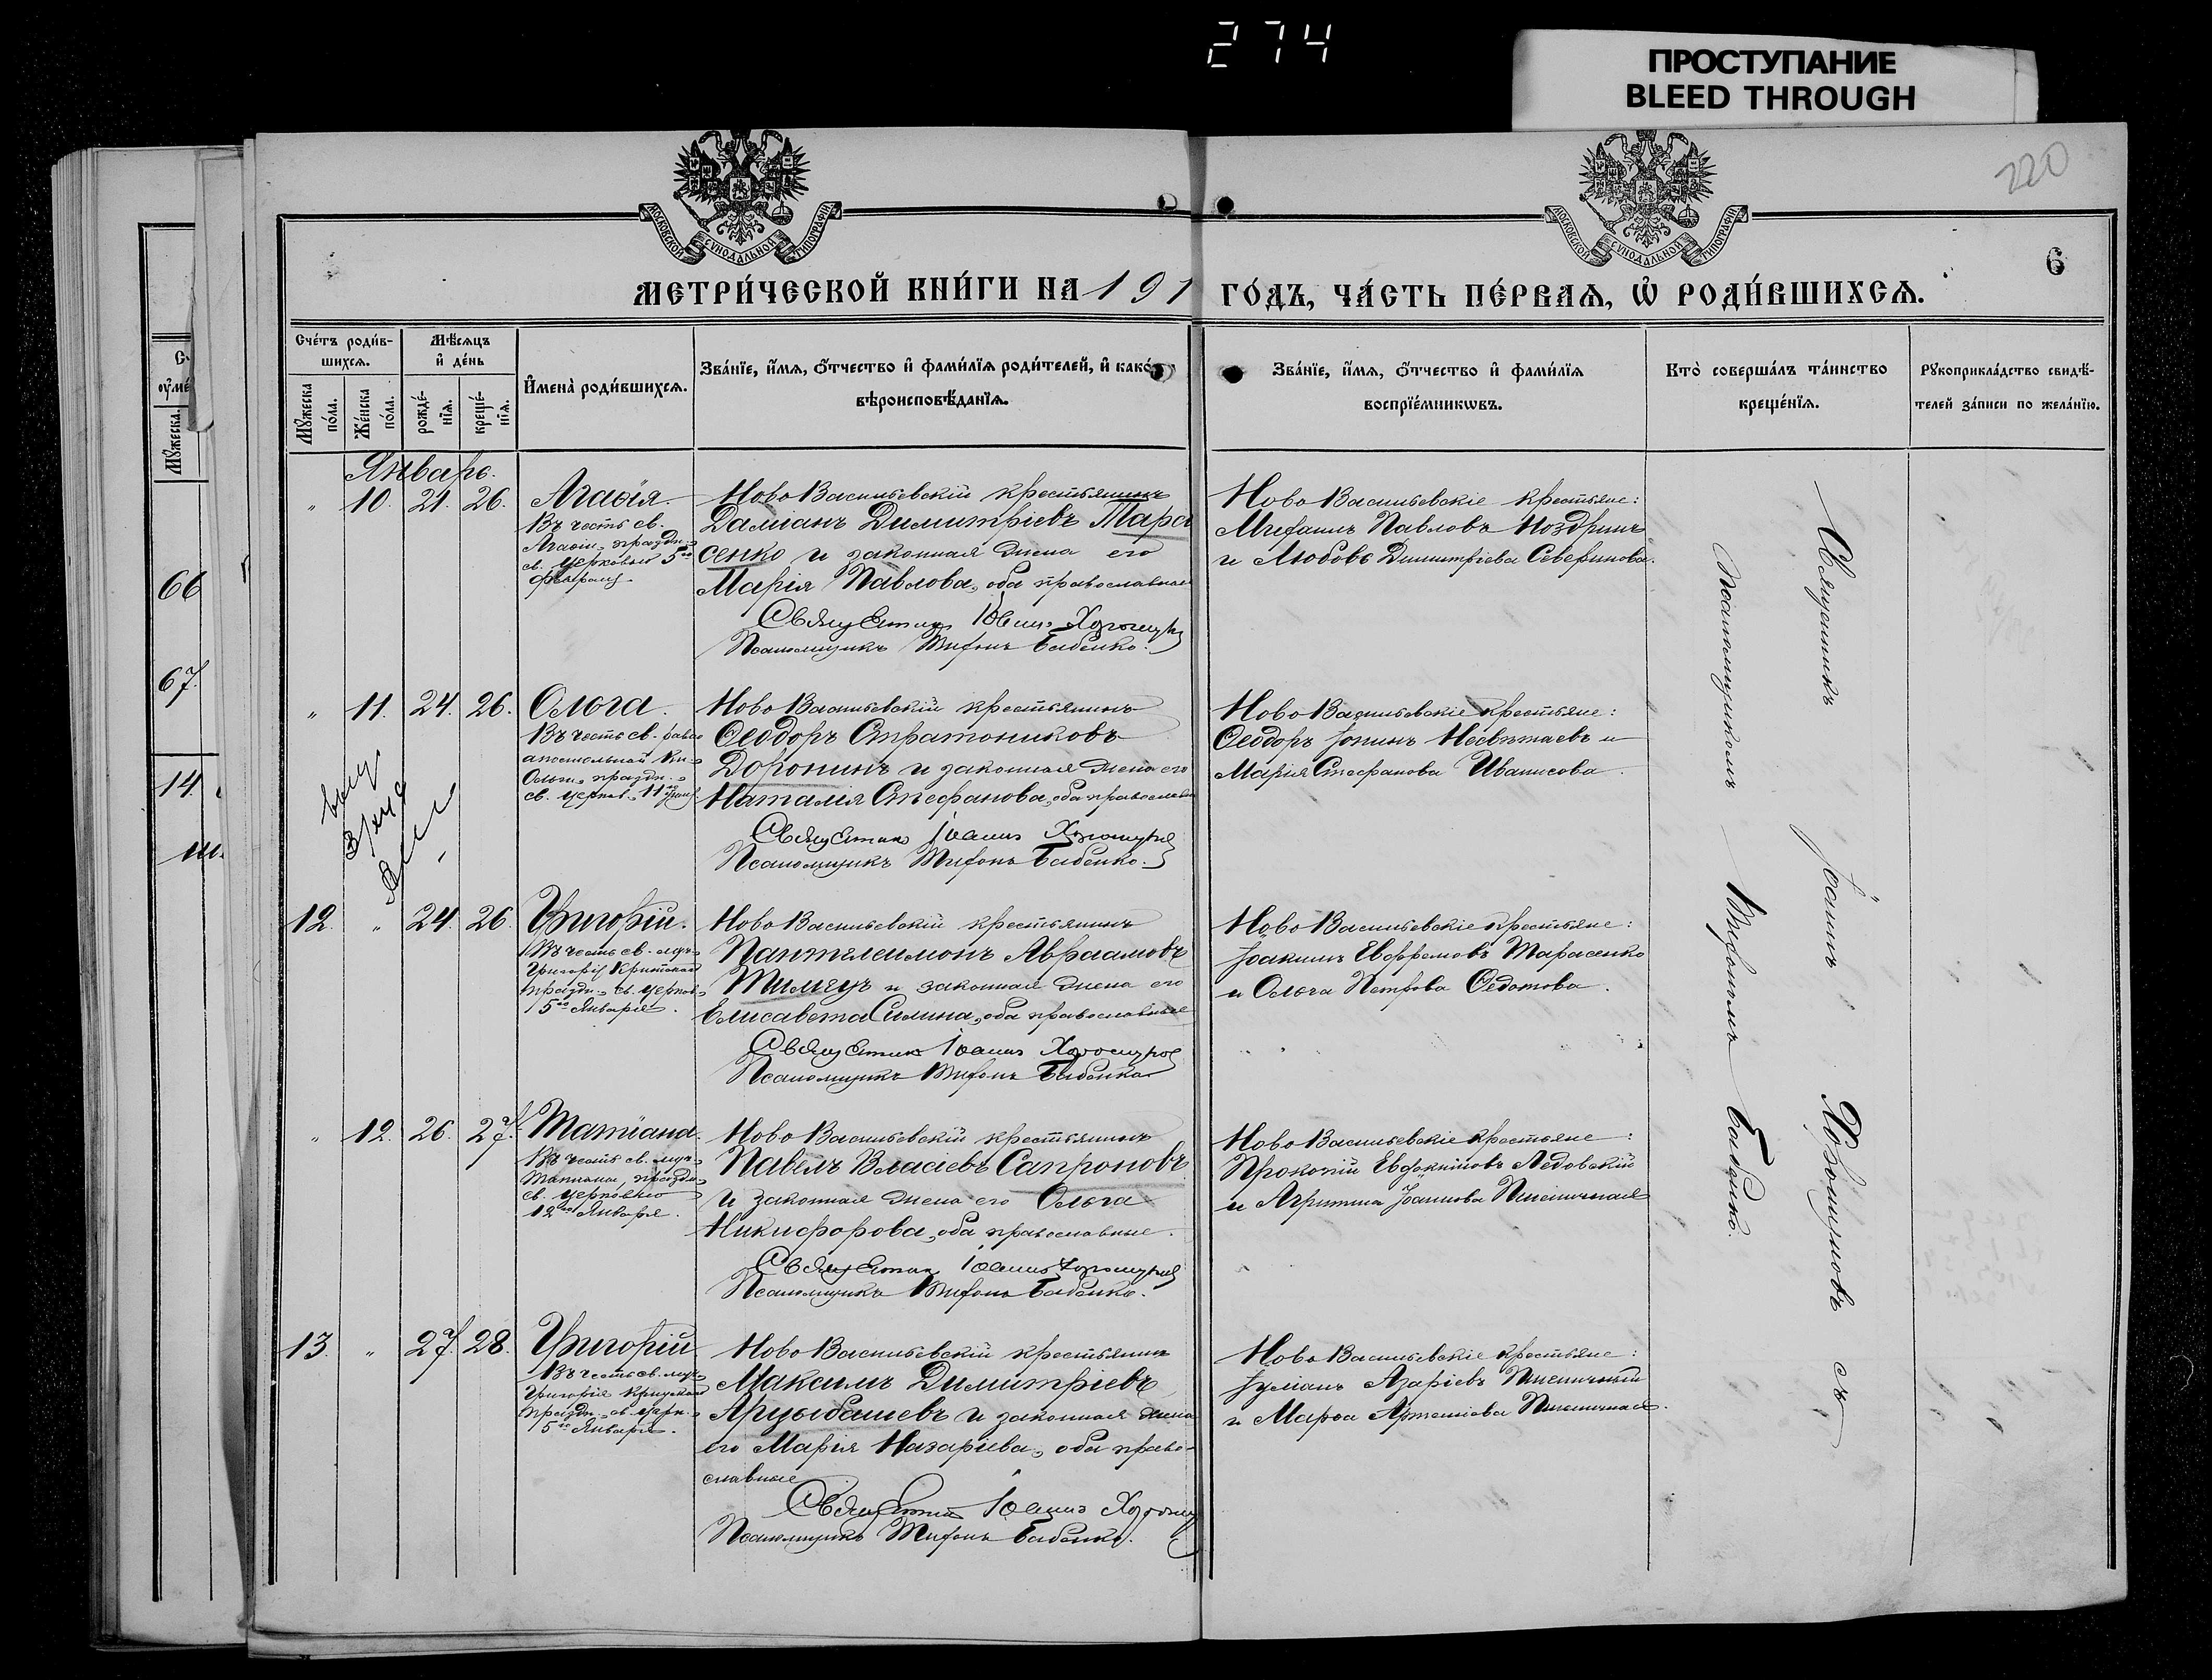 274
ПРОСТУПАНИЕ
BLEED THROUGH
220
МОСКОВСКОЙ СѴНОДАЛЬНОЙ ТИПОГРАФІИ
МОСКОВСКОЙ СѴНОДАЛЬНОЙ ТИПОГРАФІИ
6
МЕТРИ́ЧЕСКОЙ КНИ́ГИ НА 191 ГО́ДЪ, ЧА́СТЬ ПЕ́РВАѦ, Ѡ҆ РОДИ́ВШИХСѦ.
Сче́тъ роди́в-
шихсѧ.
Мѣ́сѧцъ
и҆ де́нь
Мꙋ́жеска
по́ла.
Же́нска
по́ла.
рожде́-
нїѧ.
креще́-
нїѧ.
И҆мена̀ роди́вшихсѧ.
Зва́нїе, и҆́мѧ, ѻ҆́тчество и҆ фами́лїѧ роди́телей, и҆ како́гѡ
вѣроисповѣ́данїѧ.
Зва́нїе, и҆́мѧ, ѻ҆́тчество и҆ фами́лїѧ
воспрїе́мникѡвъ.
Кто̀ соверша́лъ та́инство
креще́нїѧ.
Рꙋкоприкла́дство свидѣ́-
телей за́писи по жела́нїю.
Мꙋ́жеска
66
67.
14.
Январь.
" 10. 21. 26. Агаѳія.
Въ честь св.
Агаѳіи, праздн.
св. церковью 5го
февраля.
Ново Васильевскій крестьянинъ
Даміанъ Димитріевъ Тара
сенко и законная жена его
Марія Павлова, оба православные
Священникъ Іоаннъ
Псаломщикъ Тихонъ Бабенко.
Ново Васильевскіе крестьяне:
Михаилъ Павловъ Ноздринъ
и Любовь Димитріева Северинова.
" 11. 24. 26. Ольга.
Въ честь св. равно
апостольной Кн.
Ольги, праздн.
св. церков. 11го
Ново Васильевскій крестьянинъ
Ѳеодоръ Стратониковъ
Доронинъ и законная жена его
Наталія Стефанова, оба православн
Священникъ Іоаннъ
Псаломщикъ Тихонъ Бабенко.
Ново Васильевскіе крестьяне:
Ѳеодоръ Іонинъ Несвѣтаевъ и
Марія Стефанова Иванисова.
12. " 24. 26. Григорій.
Въ честь св.
Григорія Критскаго
праздн. св. церков.
5го Января.
Ново Васильевскій крестьянинъ
Пантелеимонъ Авраамовъ
и законная жена его
Елисавета Силина, оба православные
Священникъ Іоаннъ
Псаломщикъ Тихонъ Бабенко
Ново Васильевскіе крестьяне:
Іоакимъ Евфремовъ Тарасенко
и Ольга Петрова Ѳедотова.
" 12. 26. 27. Татіана.
Въ честь св. муч.
Татіаны, праздн.
св. церковію
12го Января.
Ново Васильевскій крестьянинъ
Павелъ Власіевъ Сапроновъ
и законная жена его Ольга
Никифорова, оба православные.
Священникъ Іоаннъ
Псаломщикъ Тихонъ Бабенко.
Ново Васильевскіе крестьяне:
Прокопій Ледовскій
и Агрипина Іоаннова Пшеничная
13. " 27. 28. Григорій
Въ честь св.
Григорія Критскаго
праздн. св. церк.
5го Января.
Ново Васильевскій крестьянинъ
Максимъ Димитріевъ
Арцыбашевъ и законная жена
его Марія Назаріева, оба право-
славные
Священникъ Іоаннъ
Псаломщикъ Тихонъ Бабенко.
Ново Васильевскіе крестьяне:
Іуліанъ Азаріевъ Пшеничный
и Марѳа Артеміева Пшеничная.
Священникъ Іоаннъ съ
псаломщикомъ Тихономъ Бабенко.